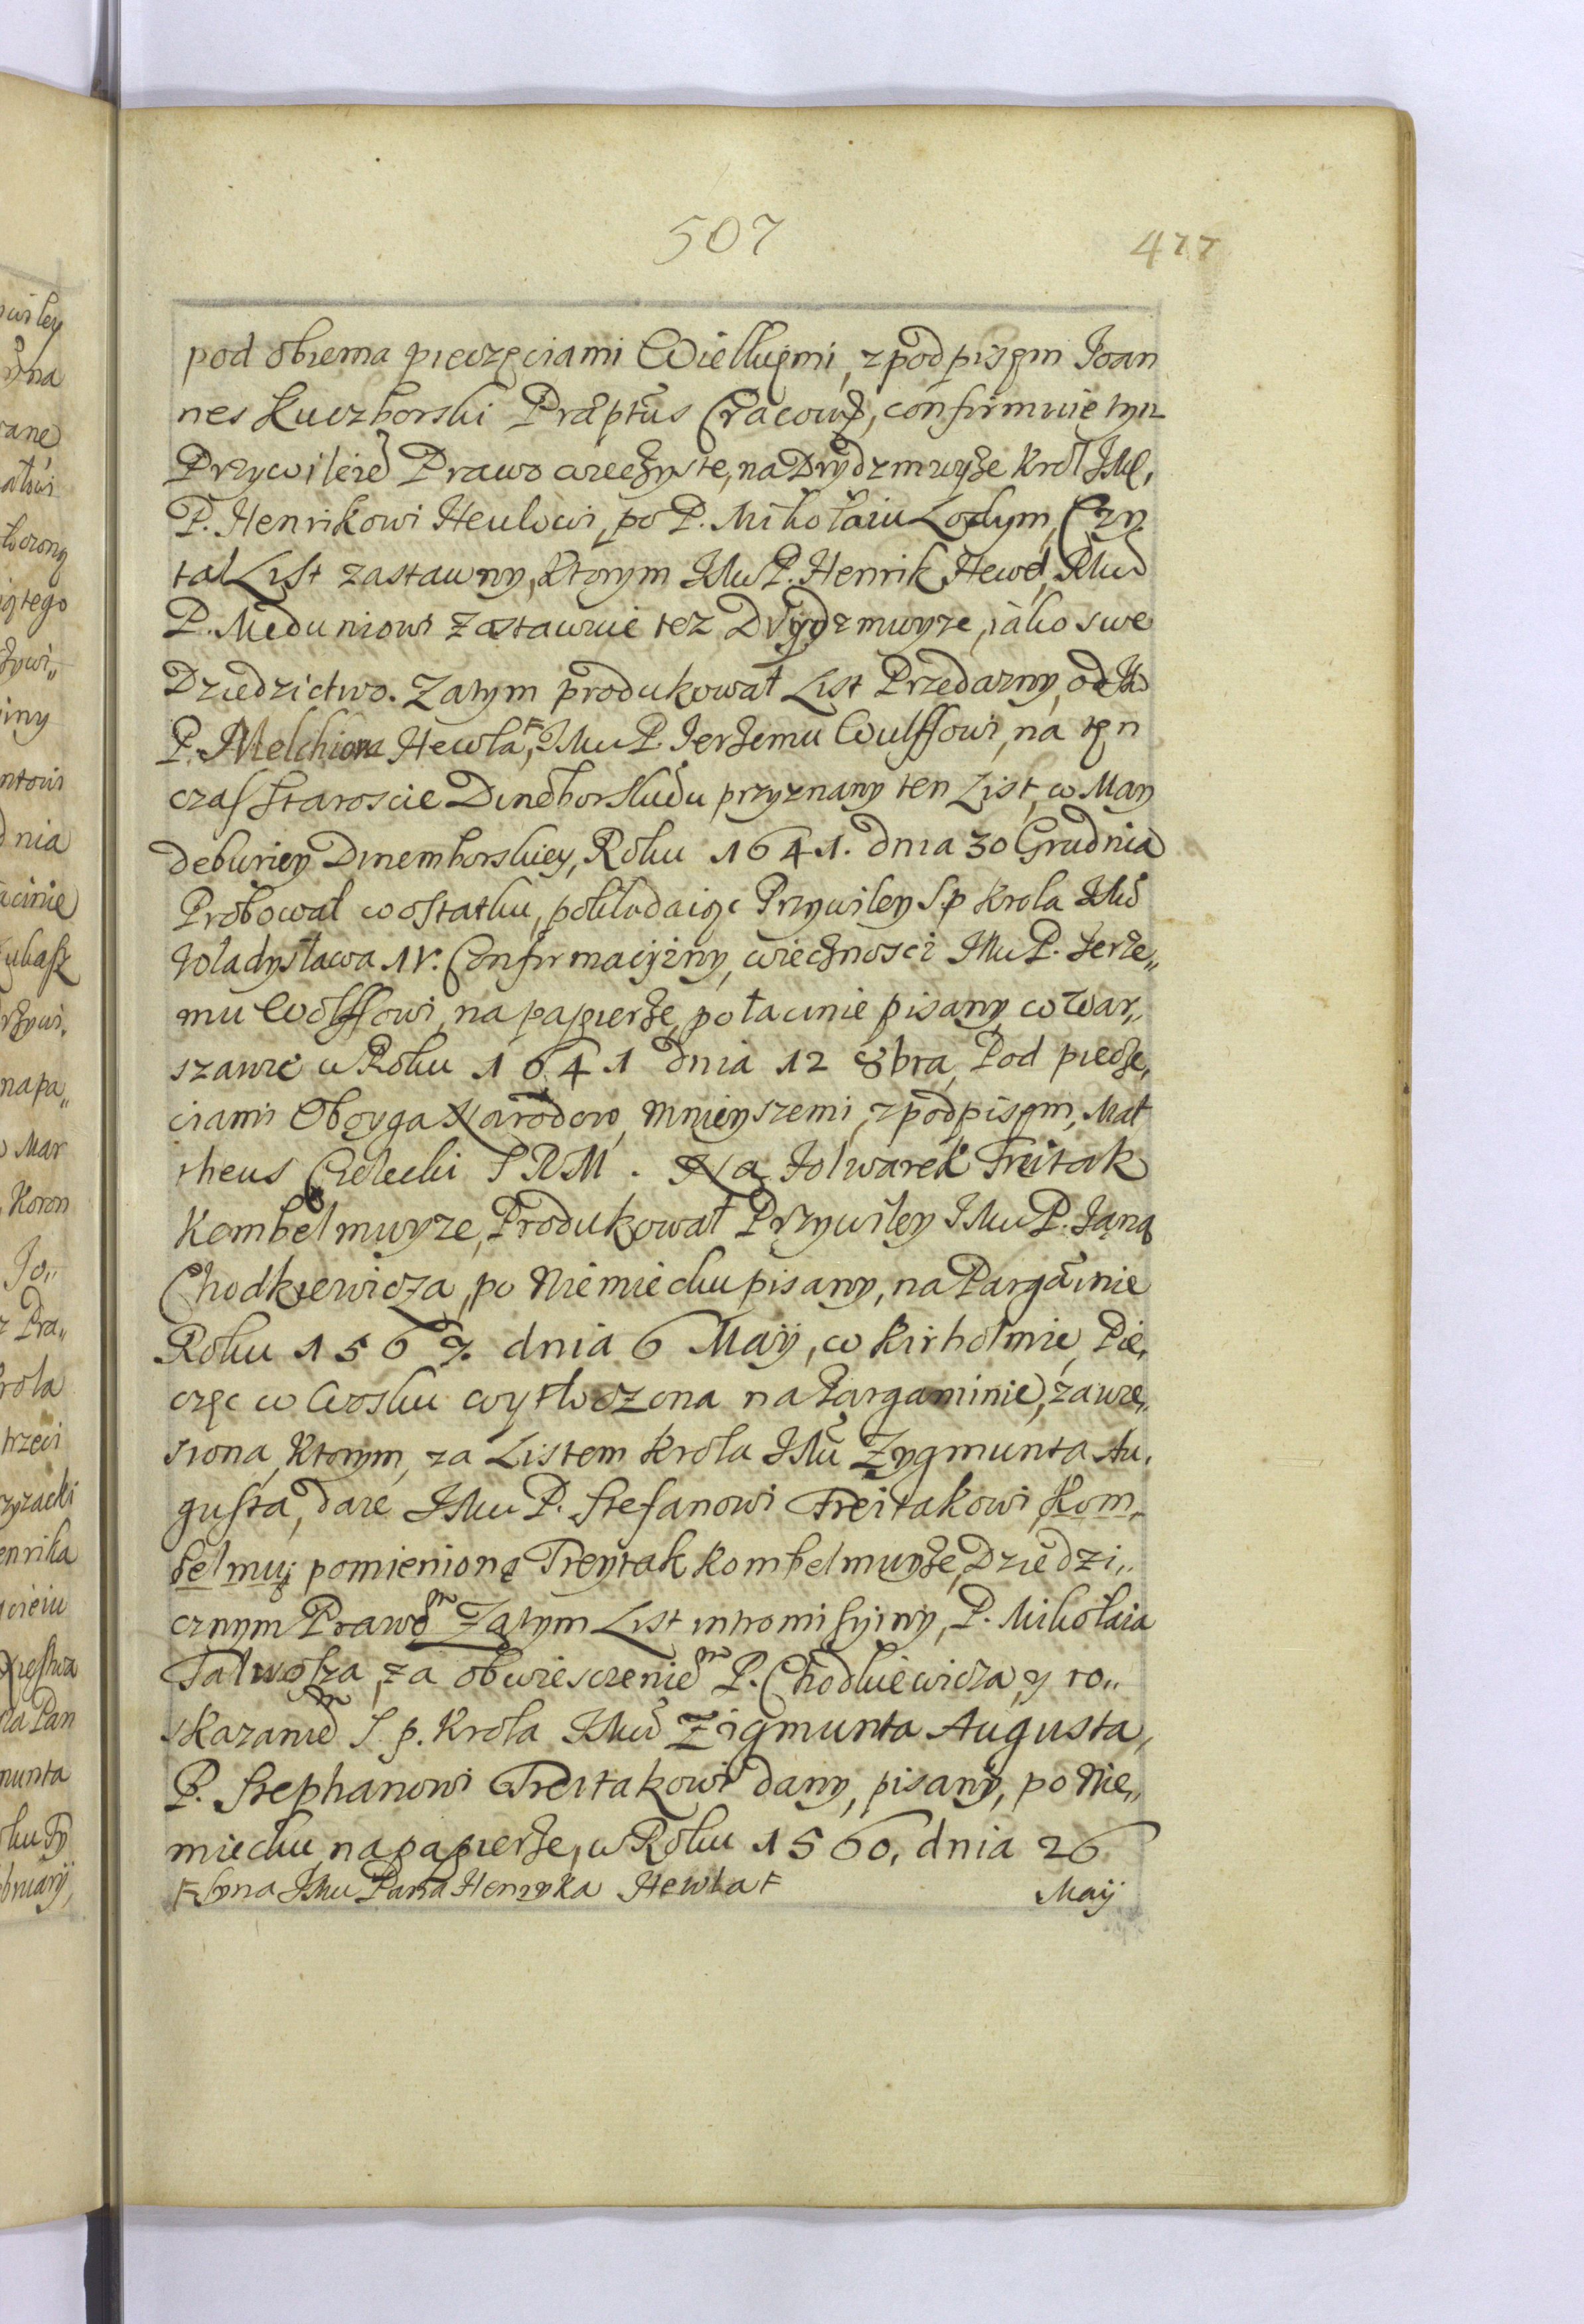 507
477
pod obiema pieczęciami Wielkięmi, z podpisęm Ioan
nes Kuczborski Præptus Cracow, confirmuie tym
Przywileiē Prawo wieczyste, na Drydzmuyże Krol JMē,
P. Henrikowi Heulowi, po P. Mikołaiu Lodym, Czy
tal List zastawny, Ktorym JMu P. Henrik Hewel, JMu
P. Meduniowi zastawuie tez Drydzmuyze, iako swe
Dziedzictwo. Zatym produkował List Przedazny, od JM
P. Melchiora Hewla, JMu P. Jerzemu Wulffowi, na tęn
czas Staroscie Dineborskiēu przyznany ten List, w May
deburiey Dinemborskiey, Roku 1641. dnia 30 Grudnia
Probowal w ostatku, pokładaiąc Przywiley S.p Krola JMu
Władysława IV. Confirmacyiny, wiecznosci JMu P. Jerze„
mu Wolffowi, na papierze, po łacinie pisany, w War„
szawie w Roku 1641 dnia 12 8bra, Pod pieczę,
ciami Oboyga Narodow, mnieyszemi, z podpisęm, Mat
theus Cielecki S R M. Na Folwarek Freitak
Kombelmuyze, Produkował Przywiley JMu P. Jana
Chodkiewicza, po Niemiecku pisany, na Pargaminie
Roku 1567. dnia 6 Maÿ, w Kirholmie, Pie,
częc w Wosku wytłoczona na Pargaminie, zawie„
siona, Ktorym, za Listem Krola JMu Zygmunta Au,
gusta, daie JMu P. Stefanowi Freitakowi Kom„
belmuj pomienioną Treytak Kombelmuyże, Dziedzi„
cznym Prawem Zatym List intromissyiny, P. Mikołaia
Talwosza, za obwiesczeniem P. Chodkiewicza, y ro„
skazaniem S. p. Krola JMu Zigmunta Augusta,
P. Stephanowi Treitakowi dany, pisany, po Nie„
miecku na papierze, w Roku 1560, dnia 26
Syna JMu Pana Henryka Hewla
Maÿ